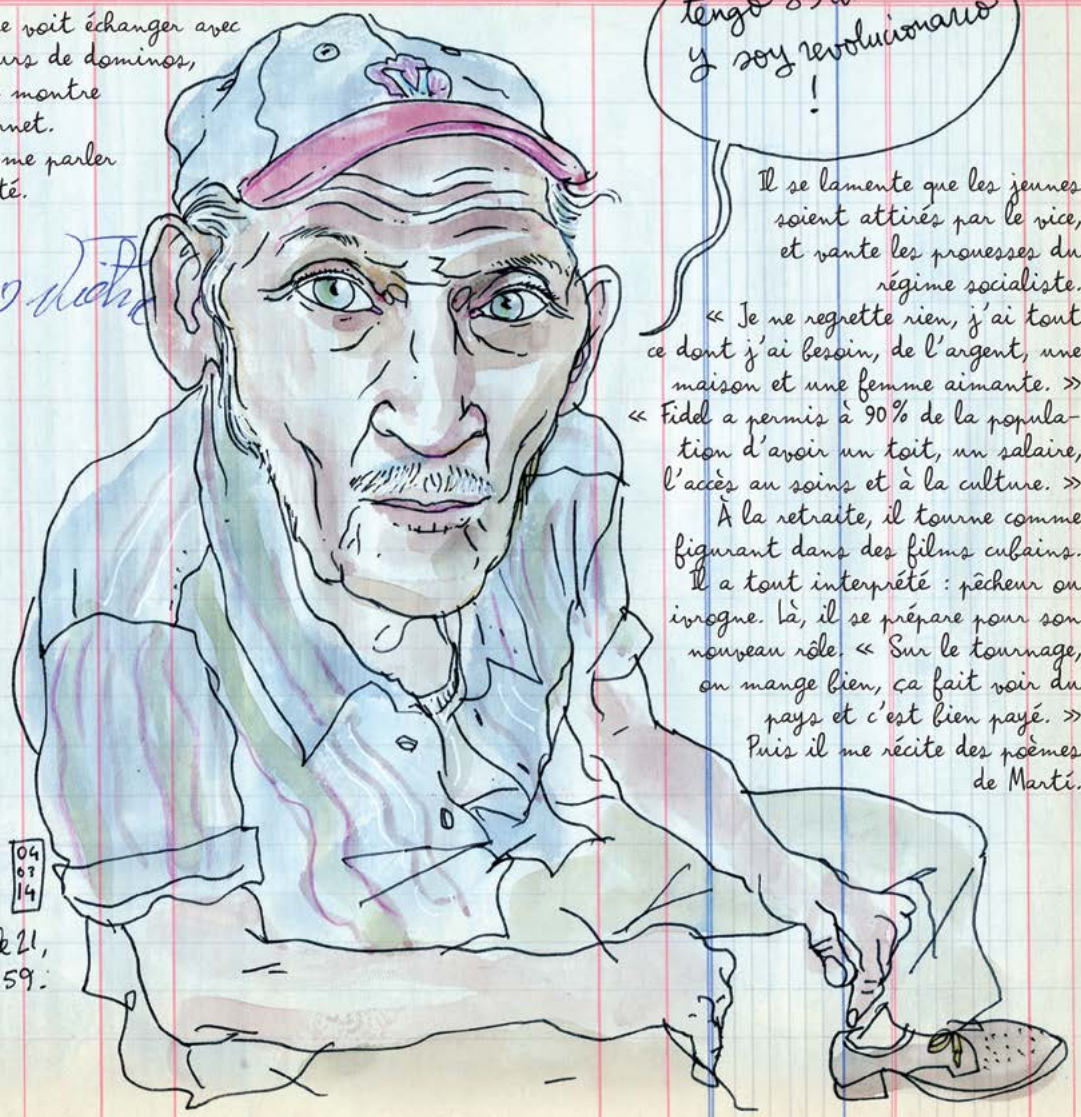 e voit échanger avec
urs de dominos,
montre
rnet.
me parler
té.
tengo
y soy revolucionario
!
Il se lamente que les jeunes
soient attirés par le vice,
et vante les prouesses du
régime socialiste.
« Je ne regrette rien, j'ai tout
ce dont j'ai besoin, de l'argent, une
maison et une femme aimante. »
« Fidel a permis à 90 % de la popula-
tion d'avoir un toit, un salaire,
l'accès au soins et à la culture. »
À la retraite, il tourne comme
figurant dans des films cubains.
Il a tout interprété : pêcheur ou
ivrogne. Là, il se prépare pour son
nouveau rôle. « Sur le tournage,
on mange bien, ça fait voir du
pays et c'est bien payé. »
Puis il me récite des poèmes
de Martí.
04
03
14
de 21,
59 :